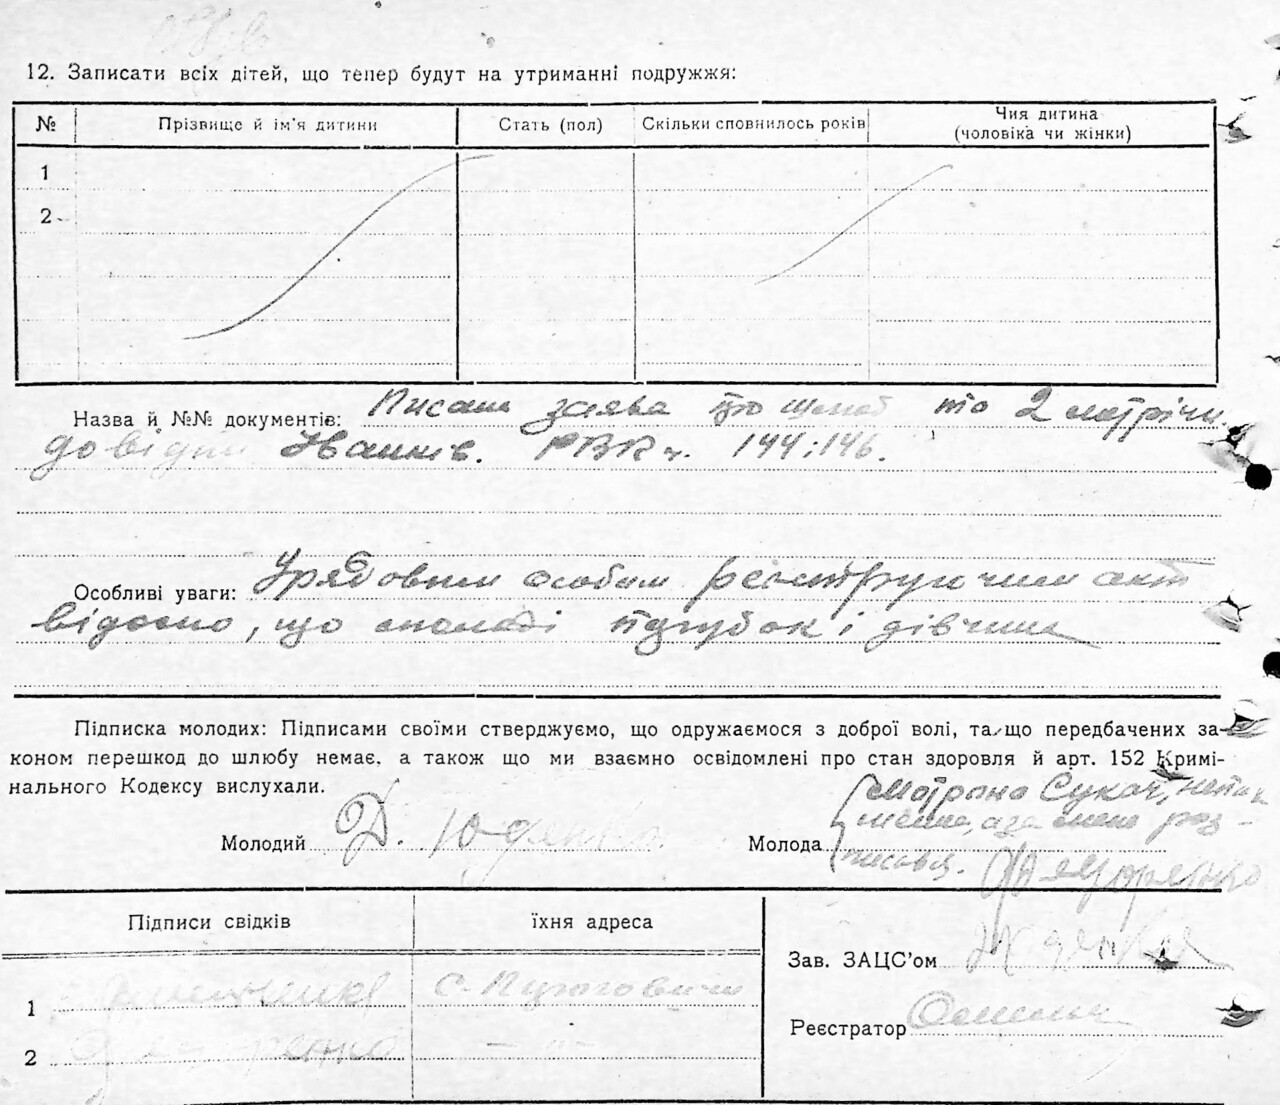 12. Записати всіх дітей, що тепер будут на утриманні подружжя:
№ Прізвище й ім'я дитини Стать (пол) Скільки сповнилось років Чия дитина
(чоловіка чи жінки)
1
2
Назва й №№ документів: Писана заява про шлюб то 2 метрічн.
довідки Іванків. РВК ч. 144; 146.
Особливі уваги: Урядовим особам реєструючим акт
відомо, що молоді парубок і дівчина
Підписка молодих: Підписами своїми стверджуємо, що одружаємося з доброї волі, та що передбачених за-
коном перешкод до шлюбу немає, а також що ми взаємно освідомлені про стан здоровля й арт. 152 Кримі-
нального Кодексу вислухали.
Молодий Д. Юденко Молода Мотрона Сукач, непис
менна, а за мене роз-
писався.
Підписи свідків їхня адреса
Зав. ЗАЦС'ом
1
Реєстратор
2 — " —